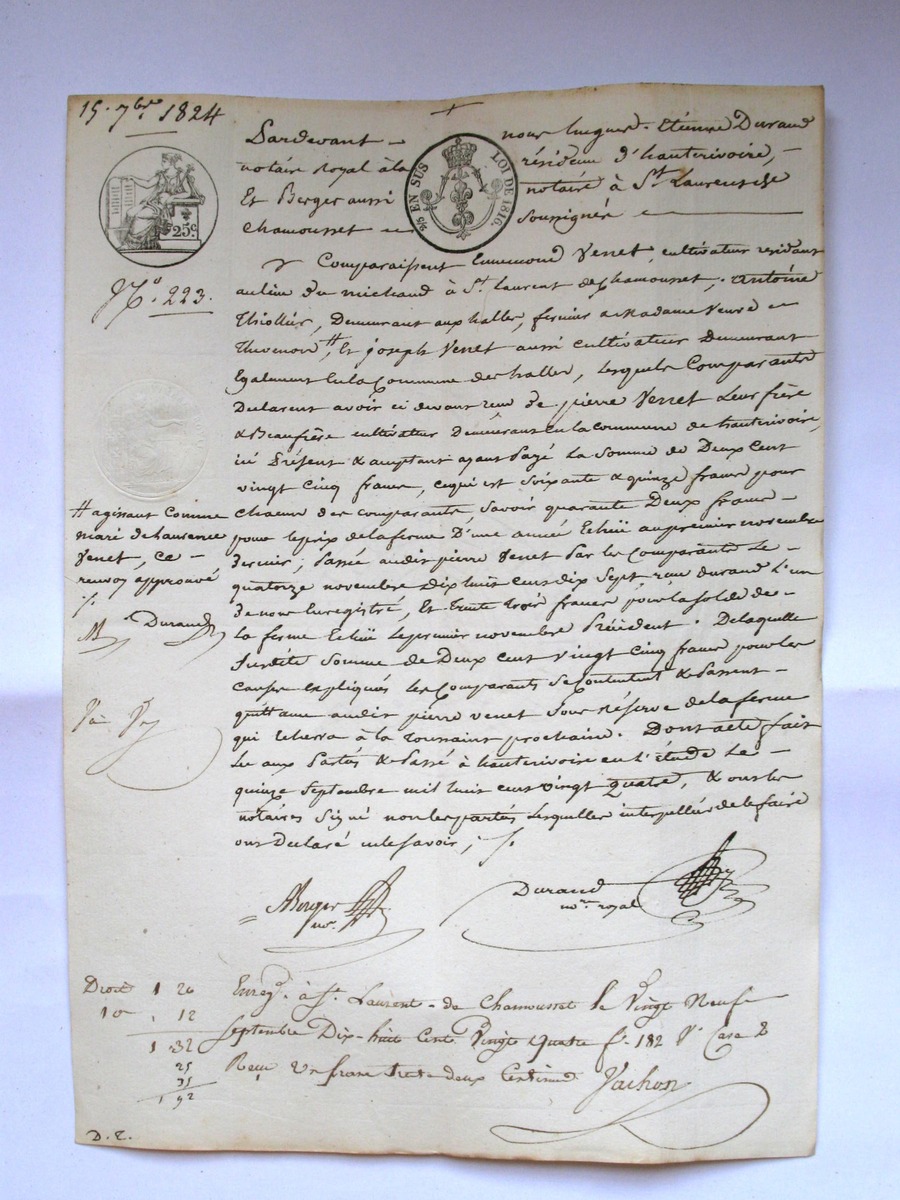 15. 7bre 1824
Pardevant nous hugues. Etienne Durand
notaire royal à la résidence d'hauterivoire,
Et Berger aussi notaire à St. Laurent de
chamousset soussignés
25c
9/5 EN SUS LOI DE 1816.
No. 223.
Comparaissent Ennemond Venet, cultivateur résidant
au lieu du michaud à St. Laurent de Chamousset, antoine
Thiollier, Demeurant aux halles, fermier de Madame Veuve
Thevenon #, Et joseph Venet aussi cultivateur Demeurant
Egalement En la Commune des halles, Lesquels Comparants
Déclarent avoir ci devant reçu de pierre Venet Leur frère
& Beaufrère cultivateur Demeurant en la commune de hauterivoire,
ici Présent & acceptant ayant Payé La Somme de Deux cent
vingt cinq francs, ce qui est soixante & quinze francs pour
chacun des comparants savoir quarante Deux francs
pour le prix de la ferme D'une année Echüe au premier novembre
dernier, Passée audit pierre Venet Par les Comparants Le
quatorze novembre dix huit cent dix Sept, reçu durand L'un
de nous Enregistré, Et trente trois francs pour la solde de
La ferme Echüe Le premier novembre Précédent. De laquelle
Susdite somme de Deux cent vingt cinq francs pour les
causes expliqués les Comparants se Contentent & Passent
quittance audit pierre venet Sous Réserve de la ferme
qui Echerra à la toussaint prochaine. Dont acte fait
Lu aux Parties & Passé à hauterivoire en L'étude Le
quinze septembre mil huit cent vingt quatre, & ont les
notaires Signé non les parties Lesquelles interpellées de le faire
ont Déclaré ne le savoir, /.
# agissant Comme
mari de Laurence
Venet, ce
renvoi approuvé
/.
Durand
Berger
nre.
Durand
nore. royal
Droit 1 20
10e . 12
1 .32
25
35
1 92
Enregé. à St. Laurent-de Chamousset le Vingt Neuf
Septembre Dix-huit Cent Vingt quatre fo. 182 Vo Case 8
Reçu Un franc trente deux Centimes Vachon
D. E.